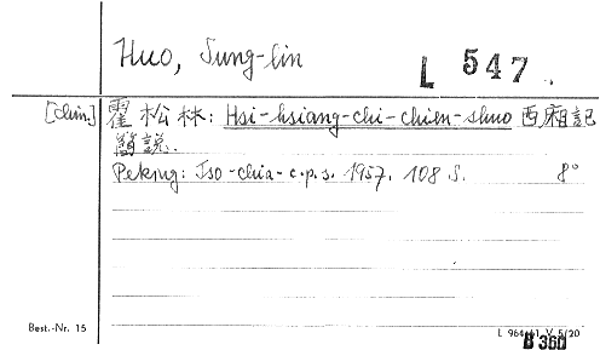 Huo, Sung-lin
L 547.
[chin] 霍松林: Hsi-hsiang-chi-chien-shuo 西廂記
簡說.
Peking: Tso-chia-c.p.s. 1957. 108 S. 8°
Best.-Nr. 15
L 964/61 V 5/20
B 360